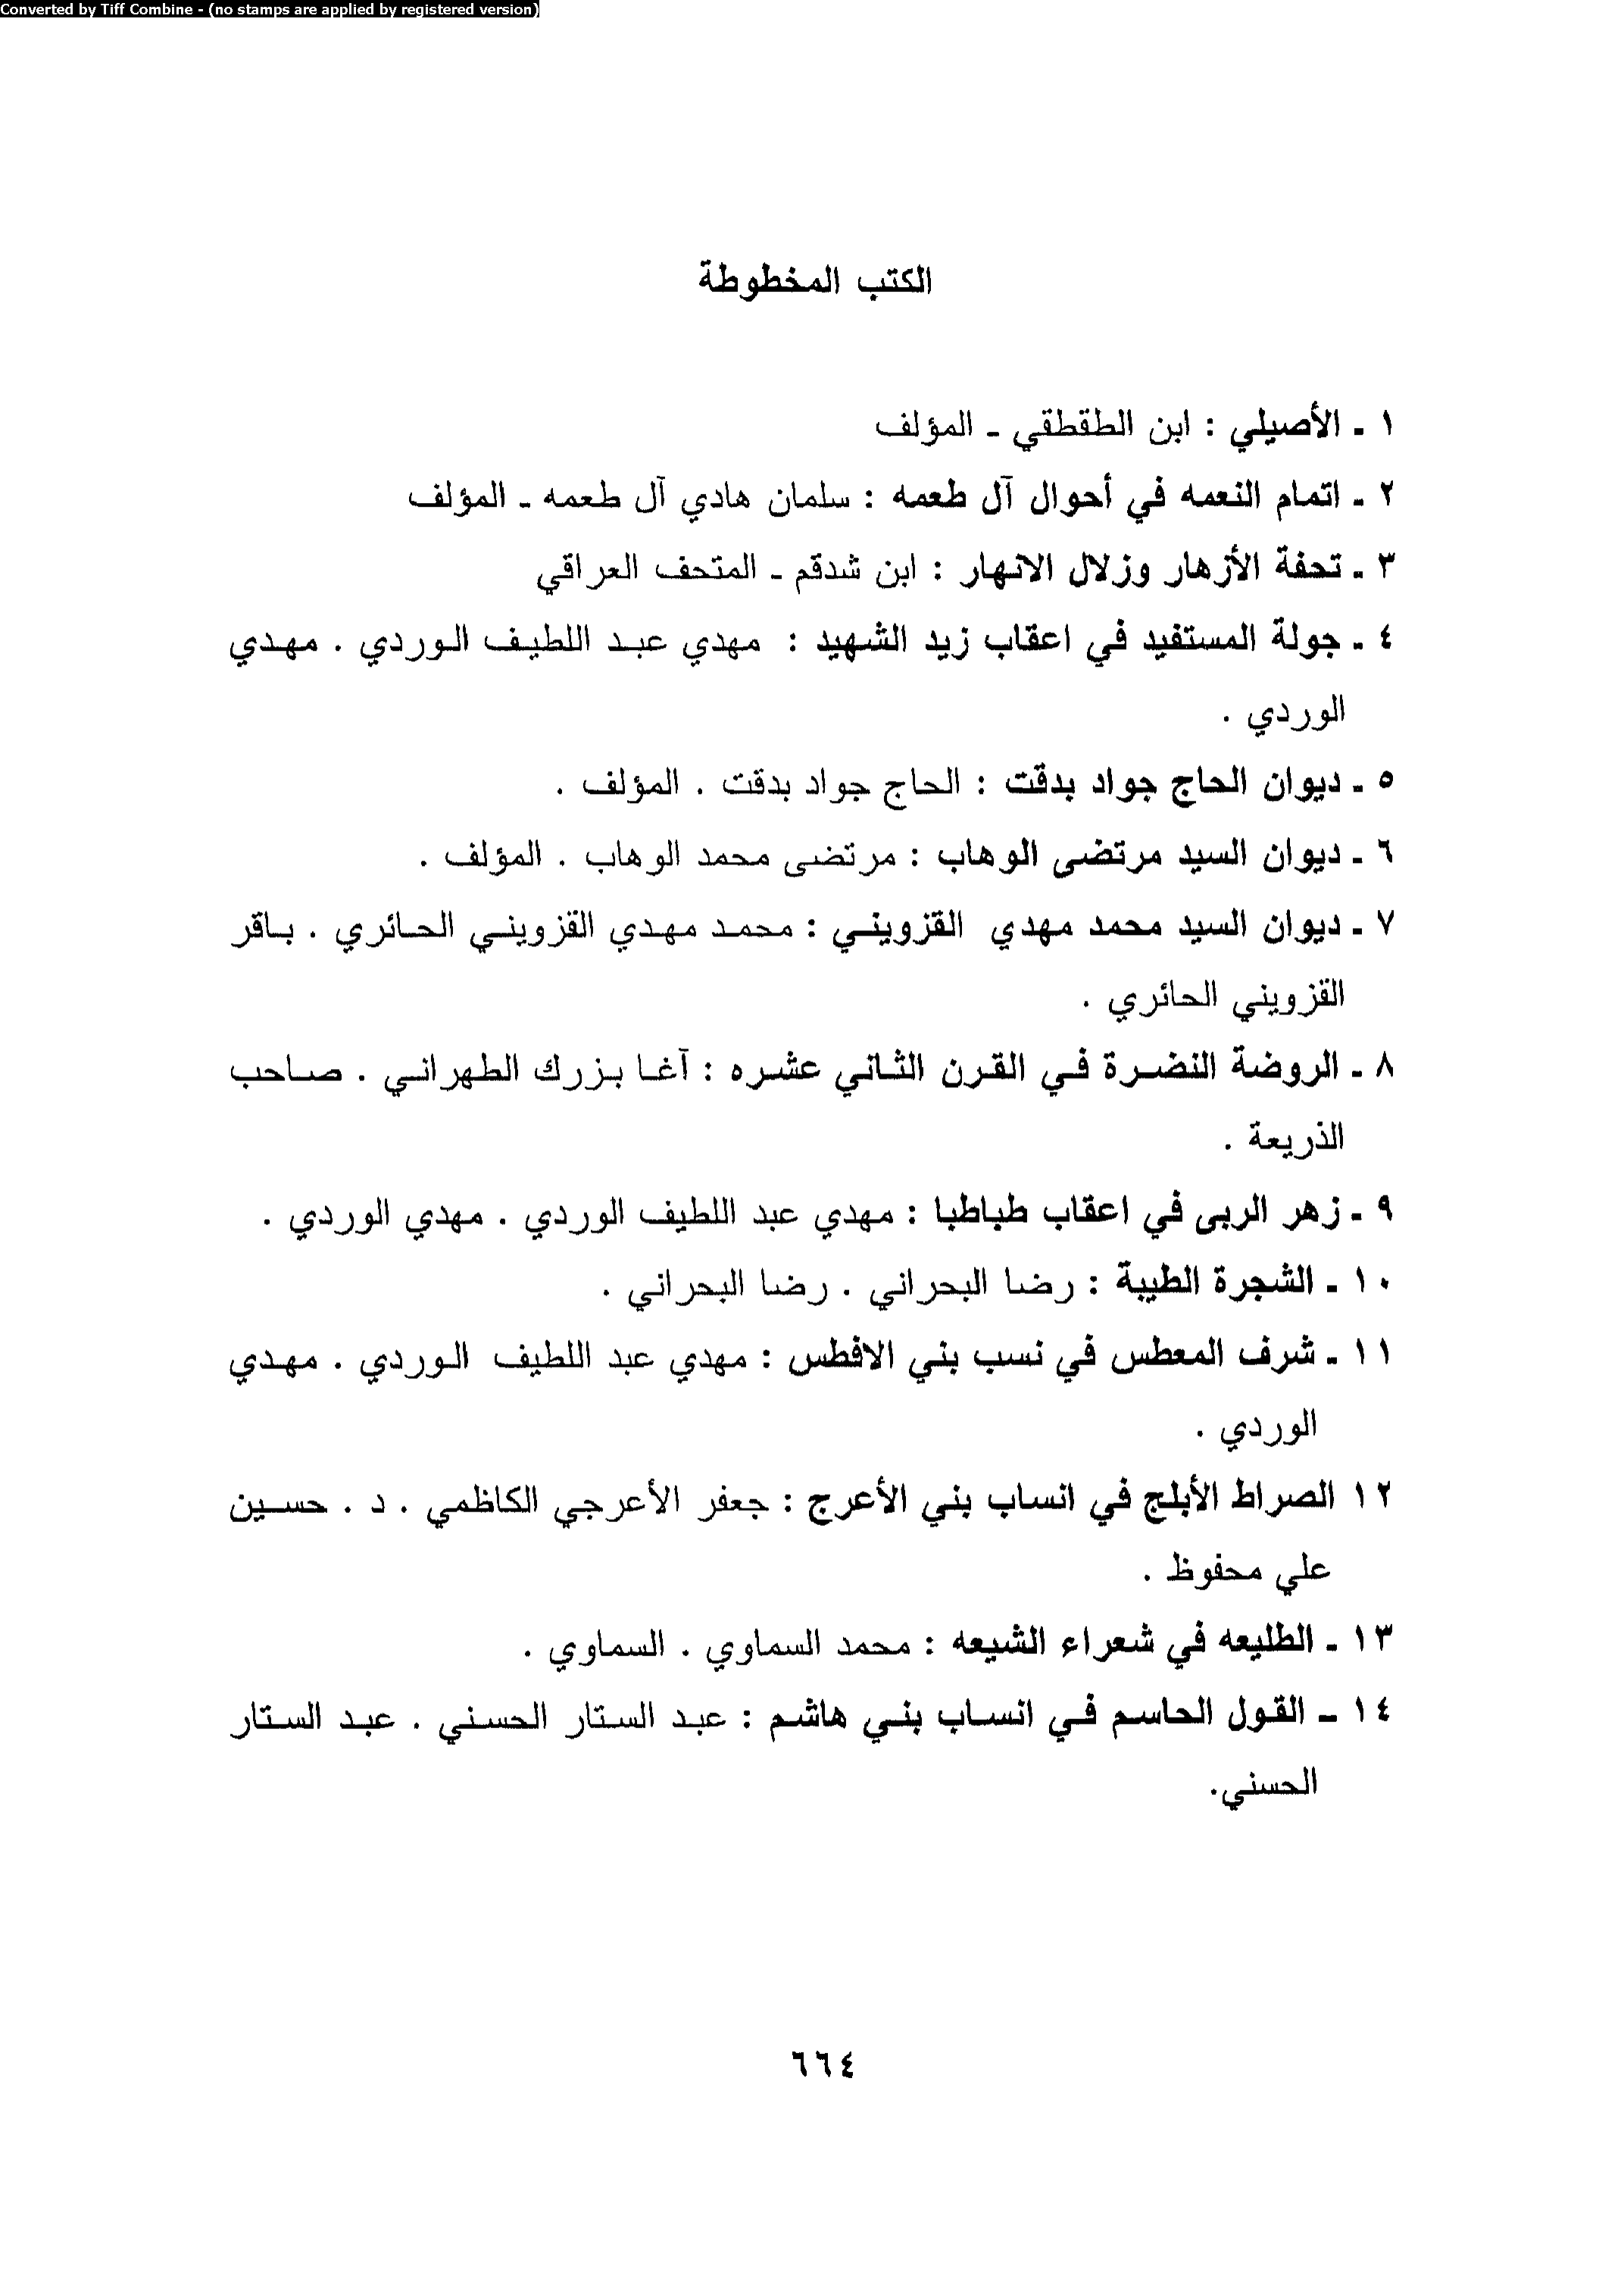 Converted by Tiff Combine - (no stamps are applied by registered version)
الكتب المخطوطة
١ ـ الأصيلي : ابن الطقطقي ـ المؤلف
٢ ـ اتمام النعمه في أحوال آل طعمه : سلمان هادي آل طعمه ـ المؤلف
٣ ـ تحفة الأزهار وزلال الانهار : ابن شدقم ـ المتحف العراقي
٤ ـ جولة المستفيد في اعقاب زيد الشهيد : مهدي عبد اللطيف الوردي . مهدي
الوردي .
٥ ـ ديوان الحاج جواد بدقت : الحاج جواد بدقت . المؤلف .
٦ ـ ديوان السيد مرتضى الوهاب : مرتضى محمد الوهاب . المؤلف .
٧ ـ ديوان السيد محمد مهدي القزويني : محمد مهدي القزويني الحائري . باقر
القزويني الحائري .
٨ ـ الروضة النضرة في القرن الثاني عشره : آغا بزرك الطهراني . صاحب
الذريعة .
٩ ـ زهر الربى في اعقاب طباطبا : مهدي عبد اللطيف الوردي . مهدي الوردي .
١٠ ـ الشجرة الطيبة : رضا البحراني . رضا البحراني .
١١ ـ شرف المعطس في نسب بني الافطس : مهدي عبد اللطيف الوردي . مهدي
الوردي .
١٢ الصراط الأبلج في انساب بني الأعرج : جعفر الأعرجي الكاظمي . د . حسين
علي محفوظ .
١٣ ـ الطليعه في شعراء الشيعه : محمد السماوي . السماوي .
١٤ ـ القول الحاسم في انساب بني هاشم : عبد الستار الحسني . عبد الستار
الحسني.
٦٦٤